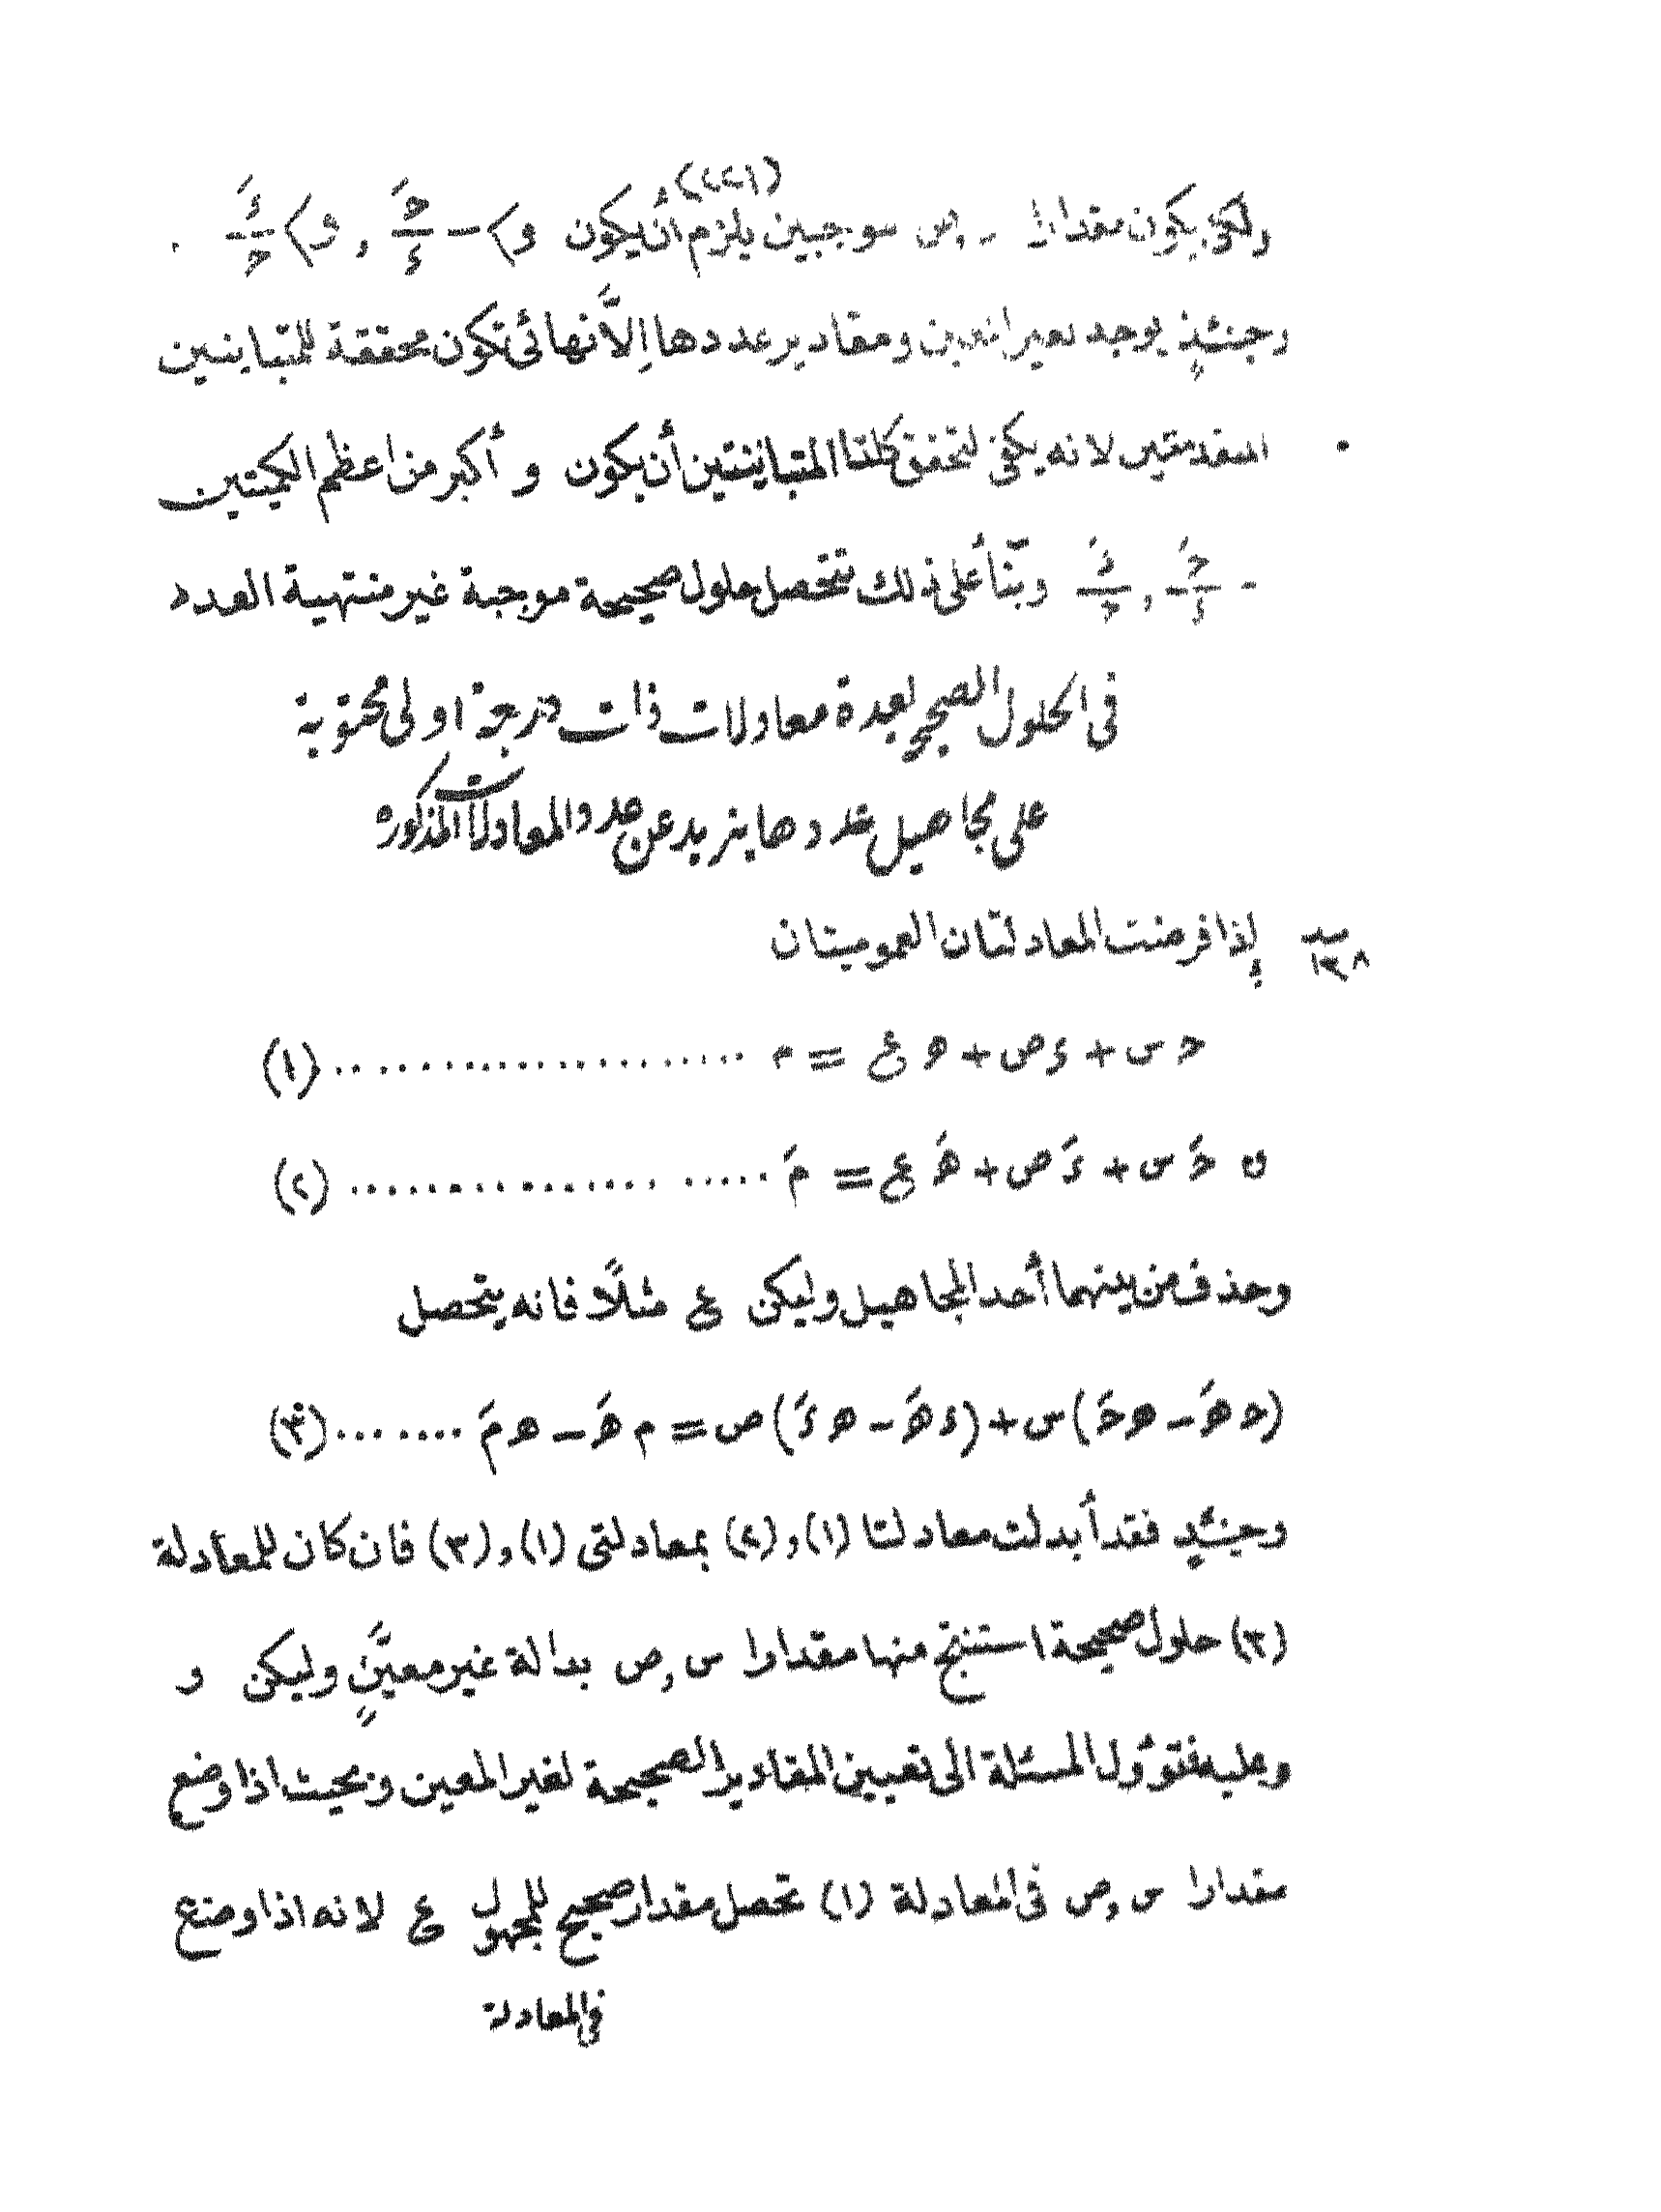 (٢٢١)
ولكى يكون مقدارا س و ص موجبين يلزم أن يكون و > - حَ/ء , و > ءَ/ح .
وحينئذٍ يوجد لغير المعين ومقادير عددها إلاّ نهائى تكون محققة للمتباينتين
المتقدمتين لانه يكفى لتحقق كلتا المتباينتين أن يكون و أكبر من اعظم الكميتين
- حَ/ء , ءَ/ح وبنّاً على ذلك تتحصل حلول صحيحة موجبة غير منتهية العدد
فى الحلول الصحيح لعدة معادلات ذات درجة اولى محتوية
على مجاهيل عددها يزيد عن عدد المعادلات المذكوره
١٣٨ إذا فرضت المعادلتان العموميتان
ح س + ء ص + ھ ع = م .................... (١)
ى حَ س + ءَ ص + ھَ ع = مَ .................... (٢)
وحذف من بينهما أحد المجاهيل وليكن ع مثلًا فانه يتحصل
(ح ھَ - ھ حَ) س + (ء ھَ - ھ ءَ) ص = م ھَ - ھ مَ ....... (٣)
وحينئذٍ فقد أبدلت معادلتا (١) و (٢) بمعادلتى (١) و (٣) فان كان للمعادلة
(٣) حلول صحيحة استنتج منها مقدارا س و ص بدالة غير معيَّنٍ وليكن و
وعليه فتؤول المسئلة الى تعيين المقادير الصحيحة لغير المعين و بحيث اذا وضع
مقدارا س و ص فى المعادلة (١) تحصل مقدار صحيح للمجهول ع لانه اذا وضع
فى المعادلة